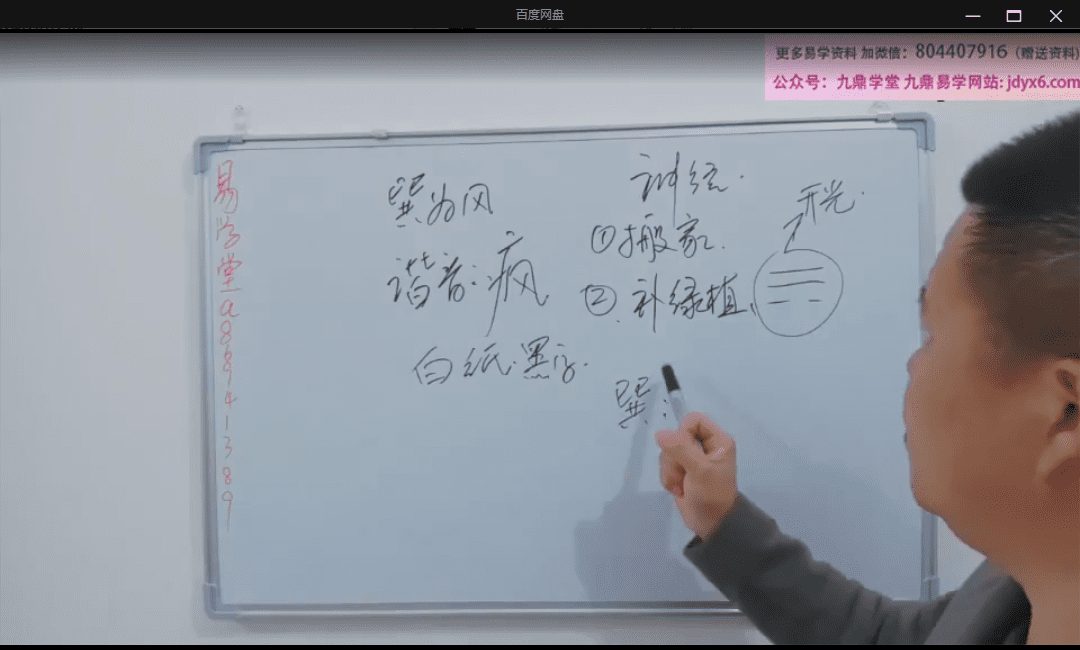 百度网盘
更多易学资料 加微信：804407916（赠送资料）
公众号：九鼎学堂 九鼎易学网站: jdyx6.com
易学堂a88941389
巽为风
谐音：疯
白纸.黑字.
①搬家.
②.补绿植.
开光.
巽：